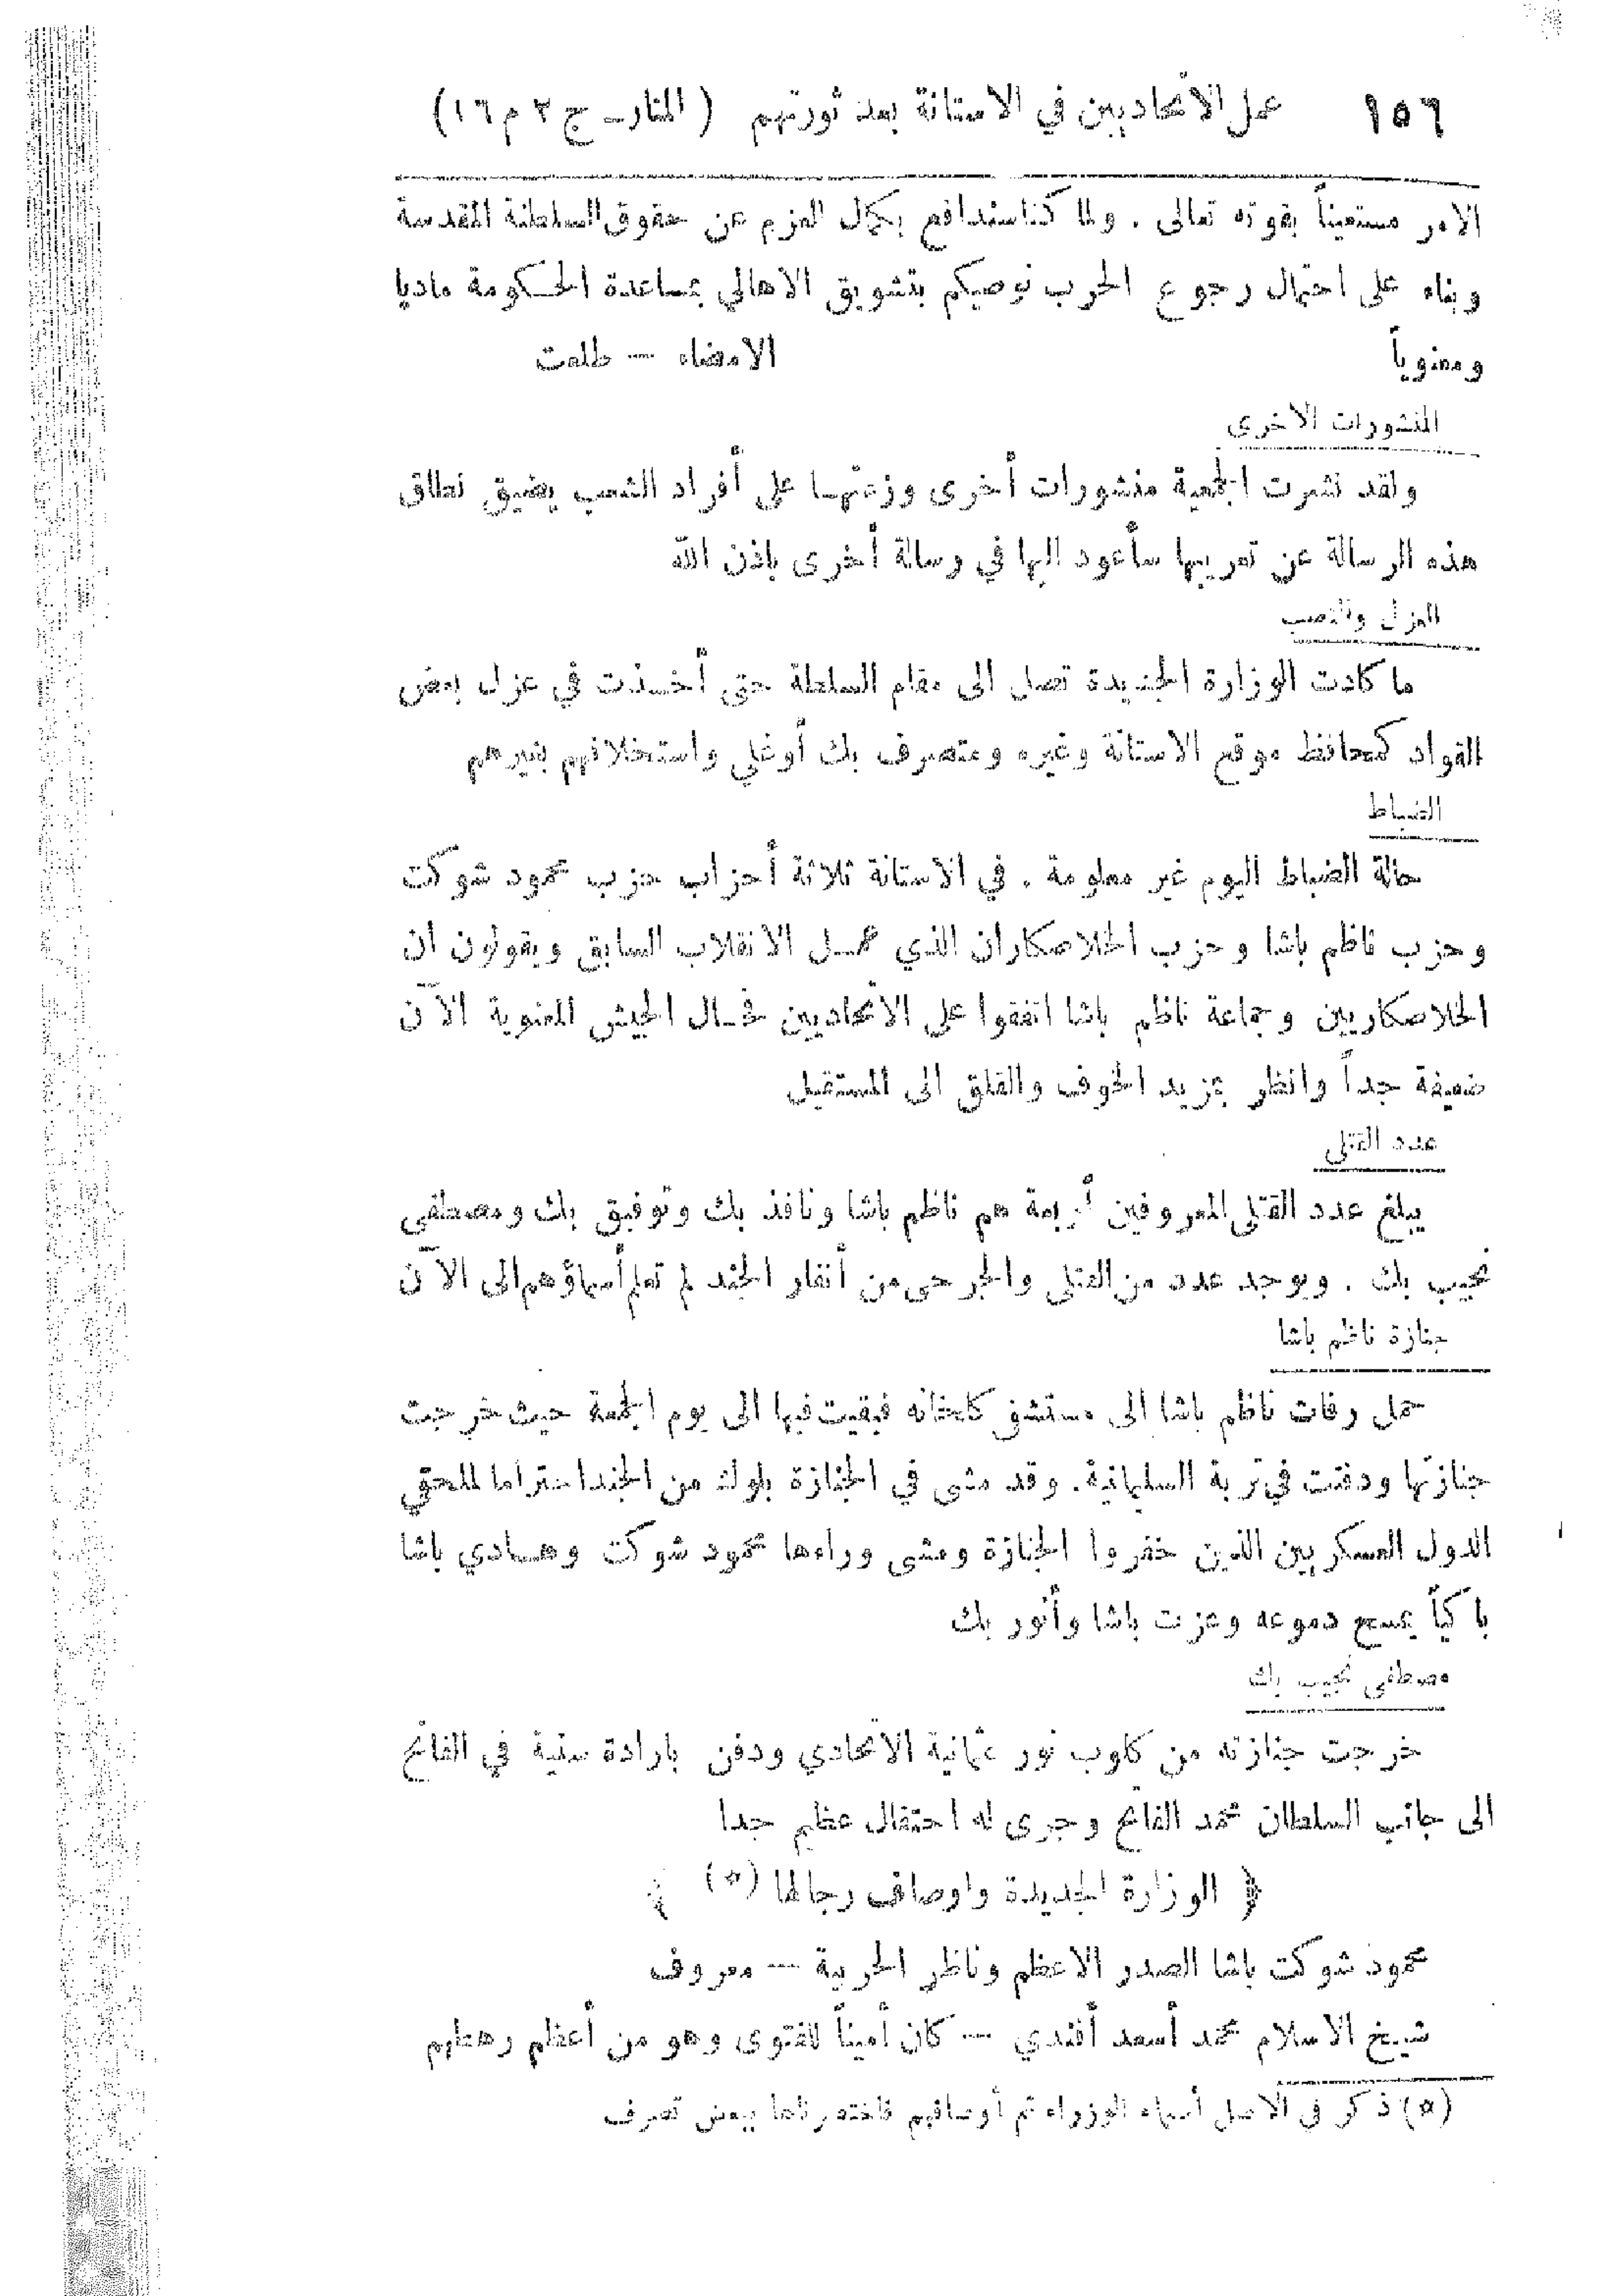 ١٥٦ عمل الاتحاديين في الاستانة بعد ثورتهم (المنار ـ ج ٢ م ١٦)
الامر مستعيناً بقوته تعالى . ولما كنا سندافع بكمال العزم عن حقوق السلطنة المقدسة
وبناء على احتمال رجوع الحرب نوصيكم بتشويق الاهالي بمساعدة الحكومة ماديا
ومعنوياً الامضاء — طلعت
المنشورات الاخرى
ولقد نشرت الجمعية منشورات أخرى وزعتها على أفراد الشعب يضيق نطاق
هذه الرسالة عن تعريبها سأعود اليها في رسالة أخرى باذن الله
العزل والنصب
ما كادت الوزارة الجديدة تصل الى مقام السلطة حتى أخذت في عزل بعض
القواد كمحافظ موقع الاستانة وغيره ومتصرف بك أوغلي واستخلافهم بغيرهم
الضباط
حالة الضباط اليوم غير معلومة . في الاستانة ثلاثة أحزاب حزب محمود شوكت
وحزب ناظم باشا وحزب الخلاصكاران الذي عمل الانقلاب السابق ويقولون ان
الخلاصكاريين وجماعة ناظم باشا اتفقوا على الاتحاديين فحال الجيش المعنوية الآن
ضعيفة جداً وانظر بمزيد الخوف والقلق الى المستقبل
عدد القتلى
يبلغ عدد القتلى المعروفين أربعة هم ناظم باشا ونافذ بك وتوفيق بك ومصطفى
نجيب بك . ويوجد عدد من القتلى والجرحى من أنفار الجند لم تعلم أسماؤهم الى الآن
جنازة ناظم باشا
حمل رفات ناظم باشا الى مستشفى كلخانه فبقيت فيها الى يوم الجمعة حيث خرجت
جنازتها ودفنت في تربة السليمانية . وقد مشى في الجنازة بلوك من الجند احتراما لملحقي
الدول العسكريين الذين خفروا الجنازة ومشى وراءها محمود شوكت وهادي باشا
باكياً يمسح دموعه وعزت باشا وأنور بك
مصطفى نجيب بك
خرجت جنازته من كلوب نور عثمانية الاتحادي ودفن بارادة سنية في الفاتح
الى جانب السلطان محمد الفاتح وجرى له احتفال عظيم جدا
﴿ الوزارة الجديدة واوصاف رجالها (*) ﴾
محمود شوكت باشا الصدر الاعظم وناظر الحربية — معروف
شيخ الاسلام محمد أسعد أفندي — كان أميناً للفتوى وهو من أعظم رهطهم
(*) ذكر في الاصل أسماء الوزراء ثم أوصافهم فاختصرناها ببعض تصرف